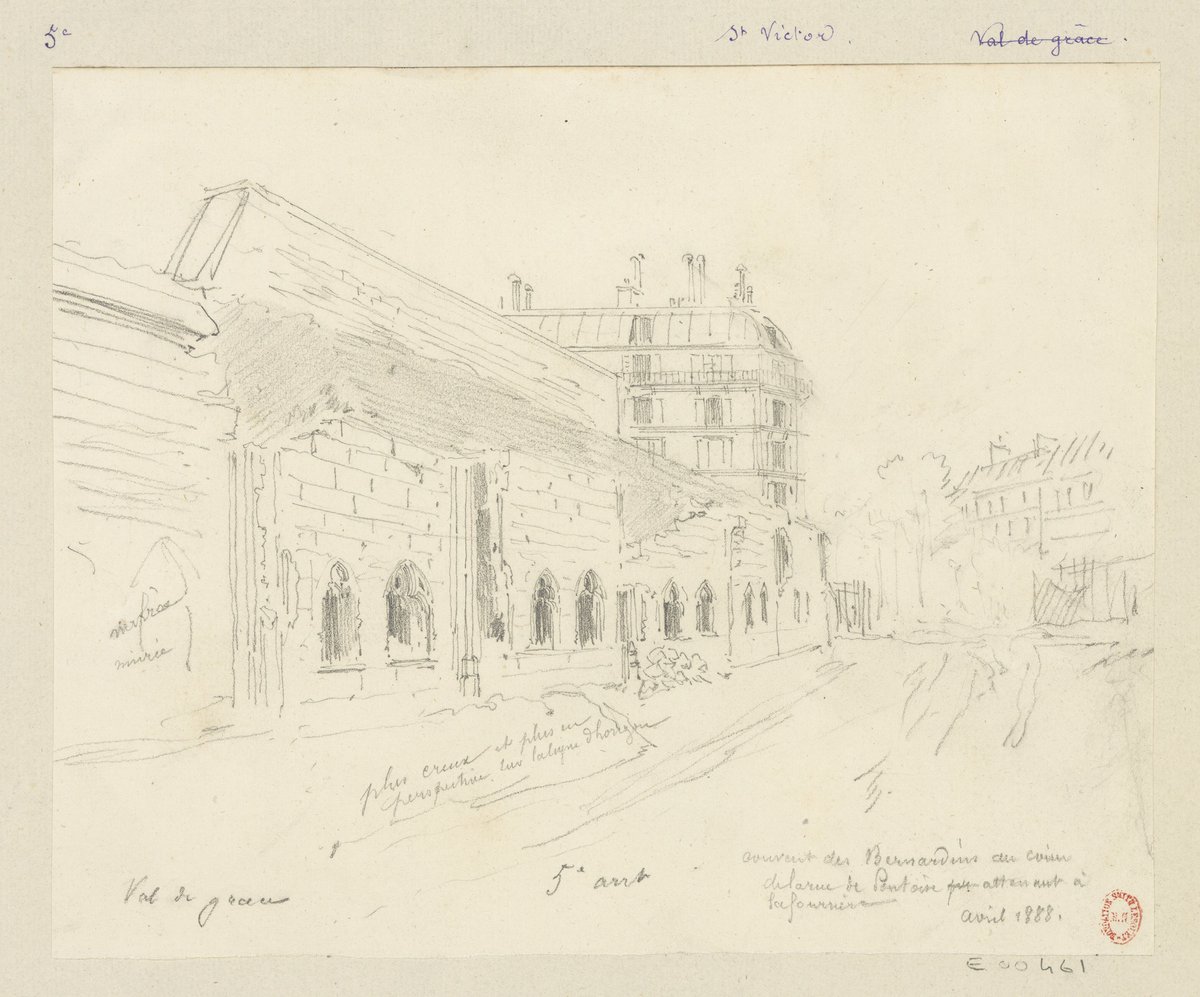 5e
St Victor.
Val de grâce.
murée
plus creux et plus en
perspective. sur la ligne d'horizon
Val de grace
5e arrt
couvent des Bernardins au coin
de la rue de Pontoise attenant à
la fourrière
avril 1888.
E 00461